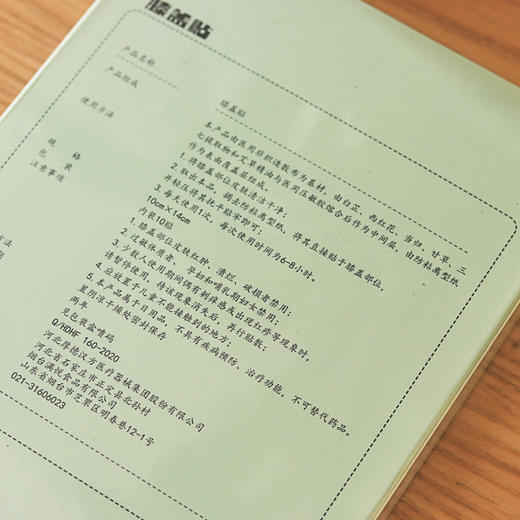 膝盖贴
产品名称
膝盖贴
产品组成
本产品由医用非织造敷布为基材，由白芷、西红花、当归、甘草、三
七提取物和艾草精油与医用压敏胶熔合后作为中间层，由防粘离型纸
作为表面覆盖层组成。
使用方法
1. 将膝盖部位皮肤清洁干净；
2. 取出本品，揭去防粘离型纸，将其直接贴于膝盖部位，
并轻压将其抚平贴牢即可；
3. 每天使用1次，每次使用时间为6-8小时。
规 格
10cm×14cm
包 装
内装10贴
注意事项
1. 膝盖部位皮肤红肿、溃烂、破损者禁用；
2. 过敏体质者、孕妇和哺乳期妇女禁用；
3. 少数人使用期间偶有刺痒感或出现红疹等现象时，
请暂停使用，待该现象消失后，再行贴敷；
4. 应放置于儿童不能接触到的地方；
5. 本产品属于日用品，不具有疾病预防、治疗功能，不可替代药品。
置阴凉干燥处密封保存
两年
见包装盒喷码
Q/HDHF 160-2020
河北厚德汉方医疗器械集团股份有限公司
河北省石家庄市正定县北孙村
烟台满悦食品有限公司
山东省烟台市芝罘区明春巷12-1号
021-31606023
方法
期